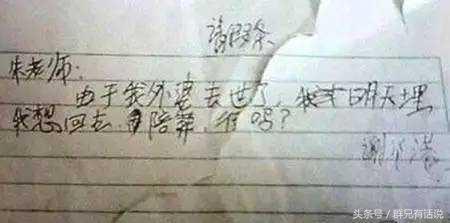 请假条
朱老师:
由于我外婆去世了,明天埋
我想回去陪葬,行吗?
谢
头条号 / 群兄有话说